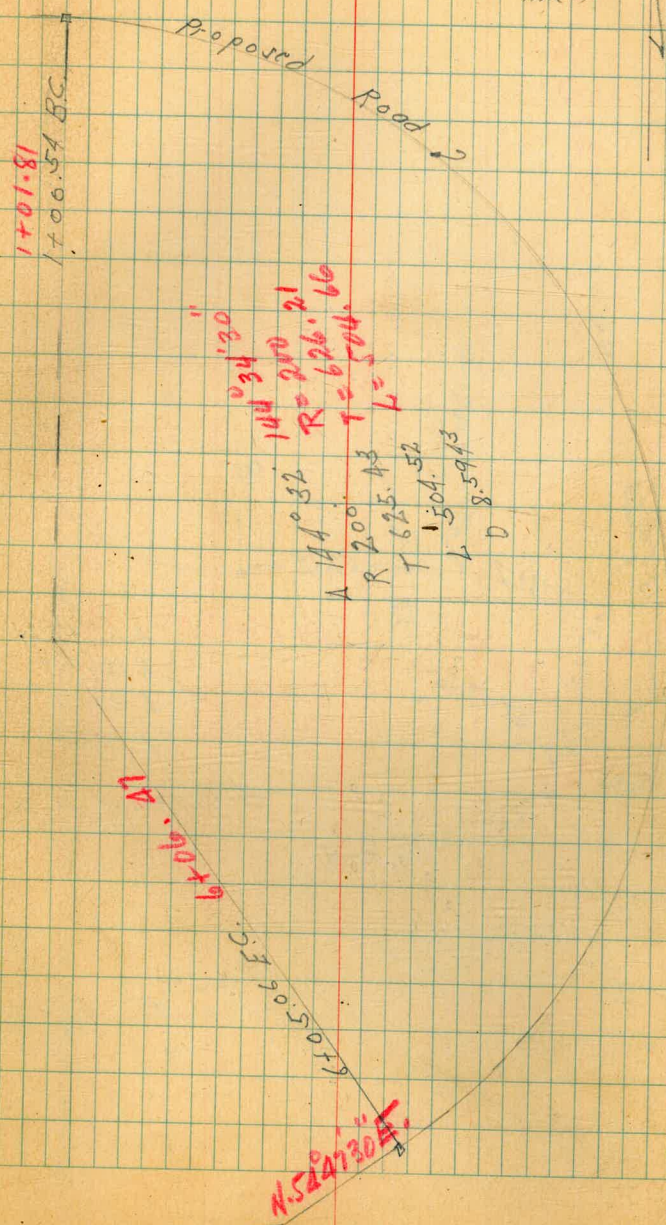 Proposed Road
1+01.81
1+00.54 B.C.
144°34'30"
R = 200
T = 626.21
L = 504.66
Δ 144°32
R 200
T 625.43
L 504.52
D 8.5943
6+06.47
6+05.06 E.C.
N.54°47'30"E.